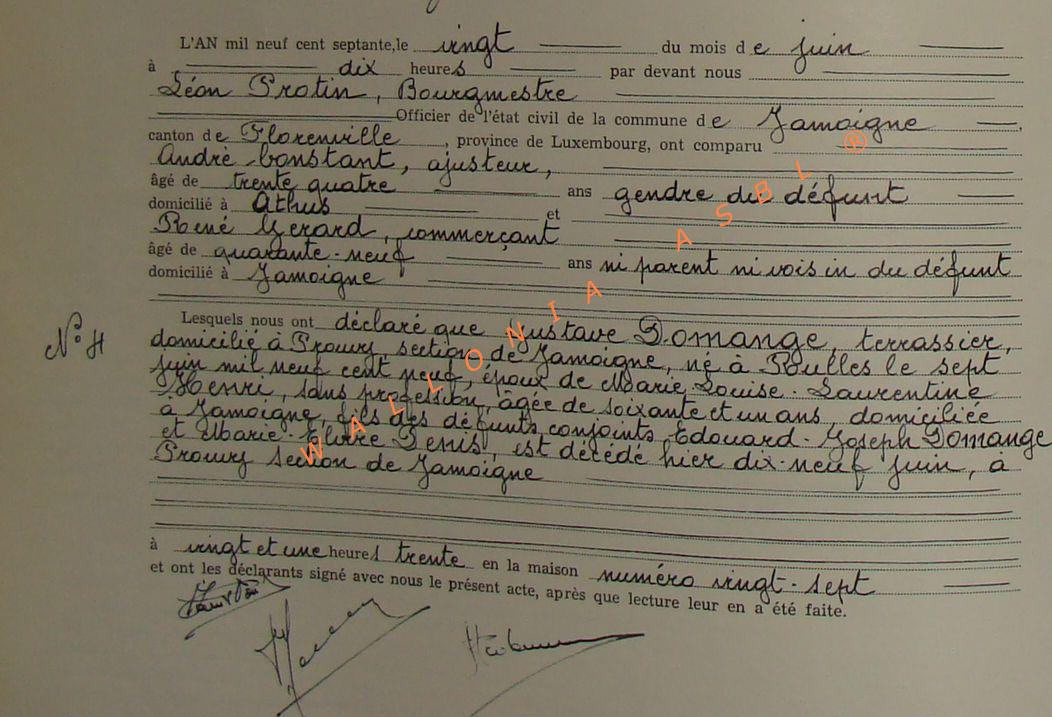 L'AN mil neuf cent septante, le vingt du mois de juin
à dix heures par devant nous
Léon Protin, Bourgmestre
Officier de l'état civil de la commune de Jamoigne
canton de Florenville, province de Luxembourg, ont comparu
André Constant, ajusteur,
âgé de trente quatre ans gendre du défunt
domicilié à Athus et
René Gerard, commerçant
âgé de quarante-neuf ans ni parent ni voisin du défunt
domicilié à Jamoigne
Lesquels nous ont déclaré que Gustave Domange, terrassier,
N° 4
domicilié à Prouvy, section de Jamoigne, né à Rulles le sept
juin mil neuf cent neuf, époux de Marie-Louise-Laurentine
Henri, sans profession, âgée de soixante et un ans, domiciliée
à Jamoigne, fils des défunts conjoints Edouard-Joseph Domange
et Marie-Elvire Denis, est décédé hier dix-neuf juin, à
Prouvy section de Jamoigne
à vingt et une heures trente en la maison numéro vingt-sept
et ont les déclarants signé avec nous le présent acte, après que lecture leur en a été faite.
WALLONIA ASBL ®